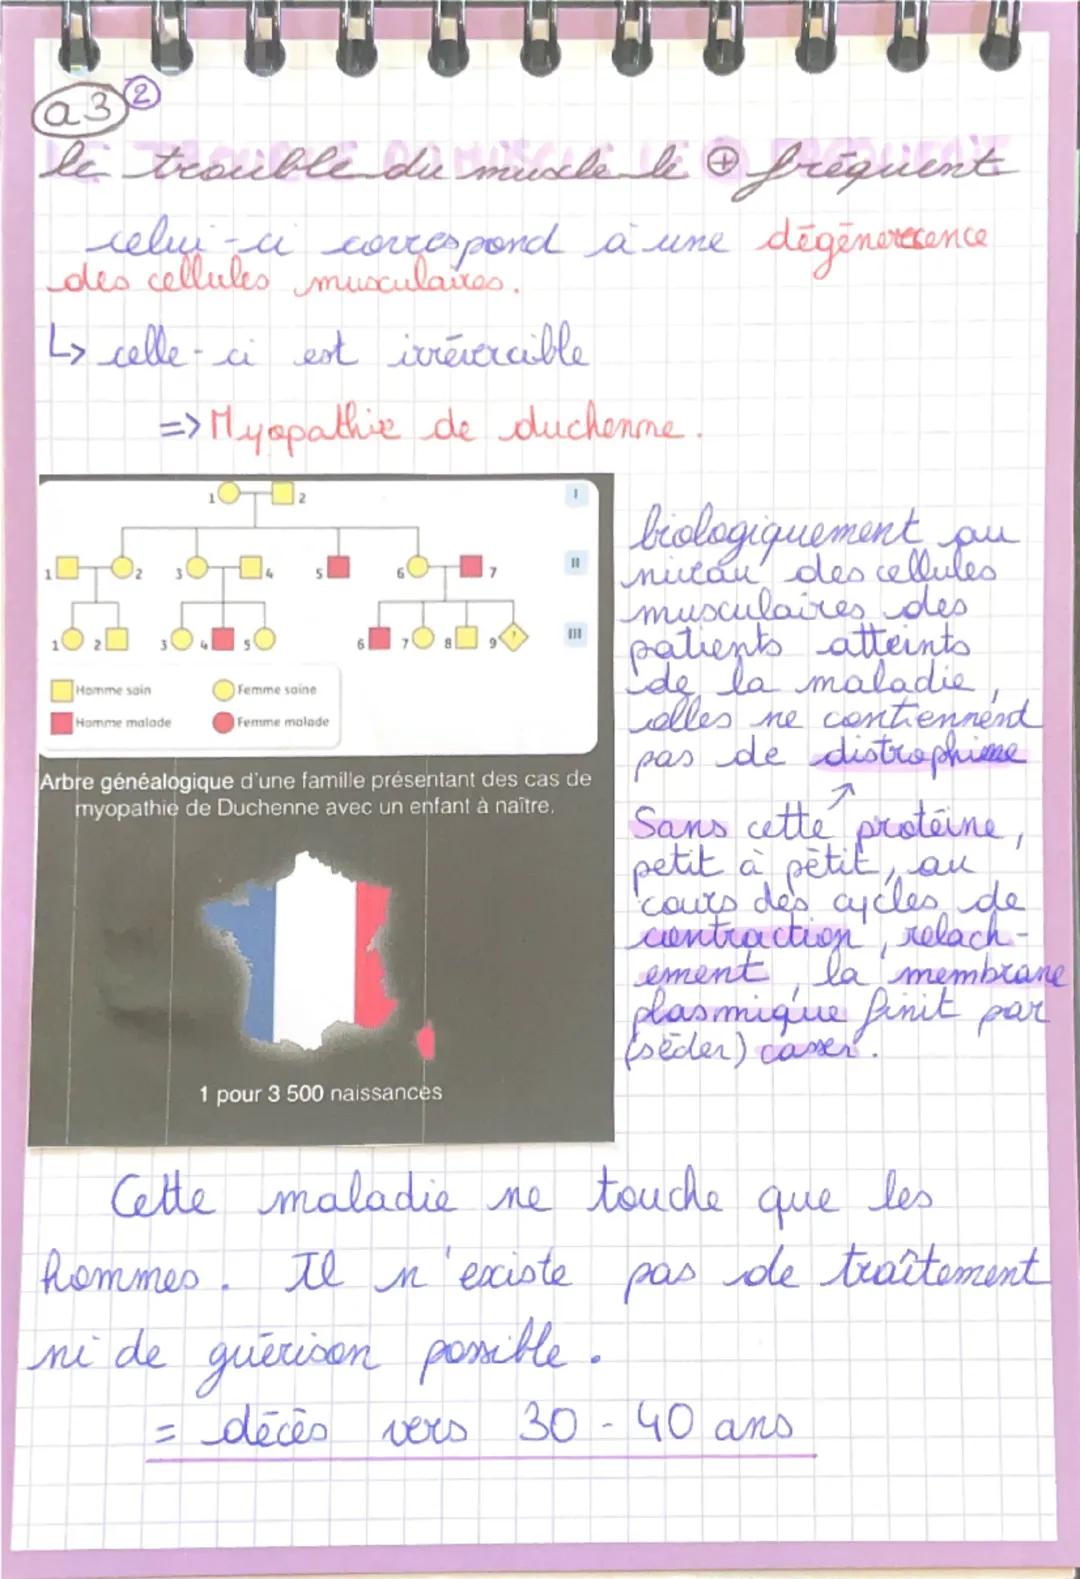 a3 2
le trouble du muscle le + fréquent
celui-ci correspond à une dégénerescence
des cellules musculaires.
↳ celle-ci est irréversible
=> Myopathie de duchenne.
1 2 I
1 2 3 4 5 6 7 II
1 2 3 4 5 6 7 8 9 ? III
Homme sain Femme saine
Homme malade Femme malade
Arbre généalogique d'une famille présentant des cas de
myopathie de Duchenne avec un enfant à naître.
1 pour 3 500 naissances
biologiquement au
niveau des cellules
musculaires des
patients atteints
de la maladie,
elles ne contiennend
pas de distrophine
Sans cette protéine,
petit à pètit, au
cours des cycles de
contraction, relach-
ement, la membrane
plasmique finit par
(séder) casser.
Cette maladie ne touche que les
hommes. Il n'existe pas de traîtement
ni de guérison possible.
= décès vers 30 - 40 ans